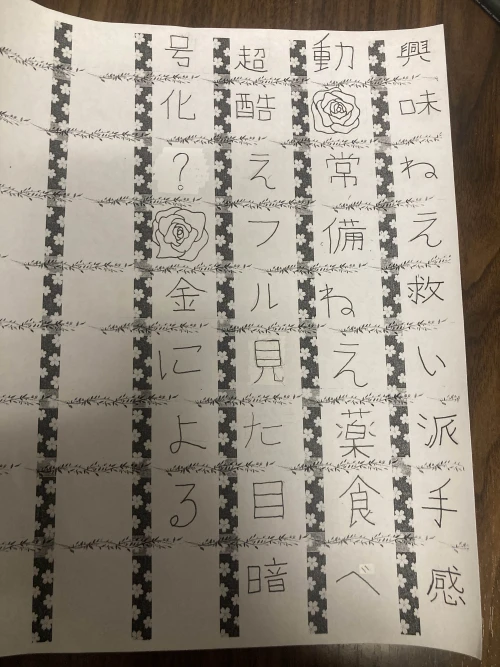 興味ねえ救い派手感
動常備ねえ薬食べ
超酷えフル見た目暗
号化?金による